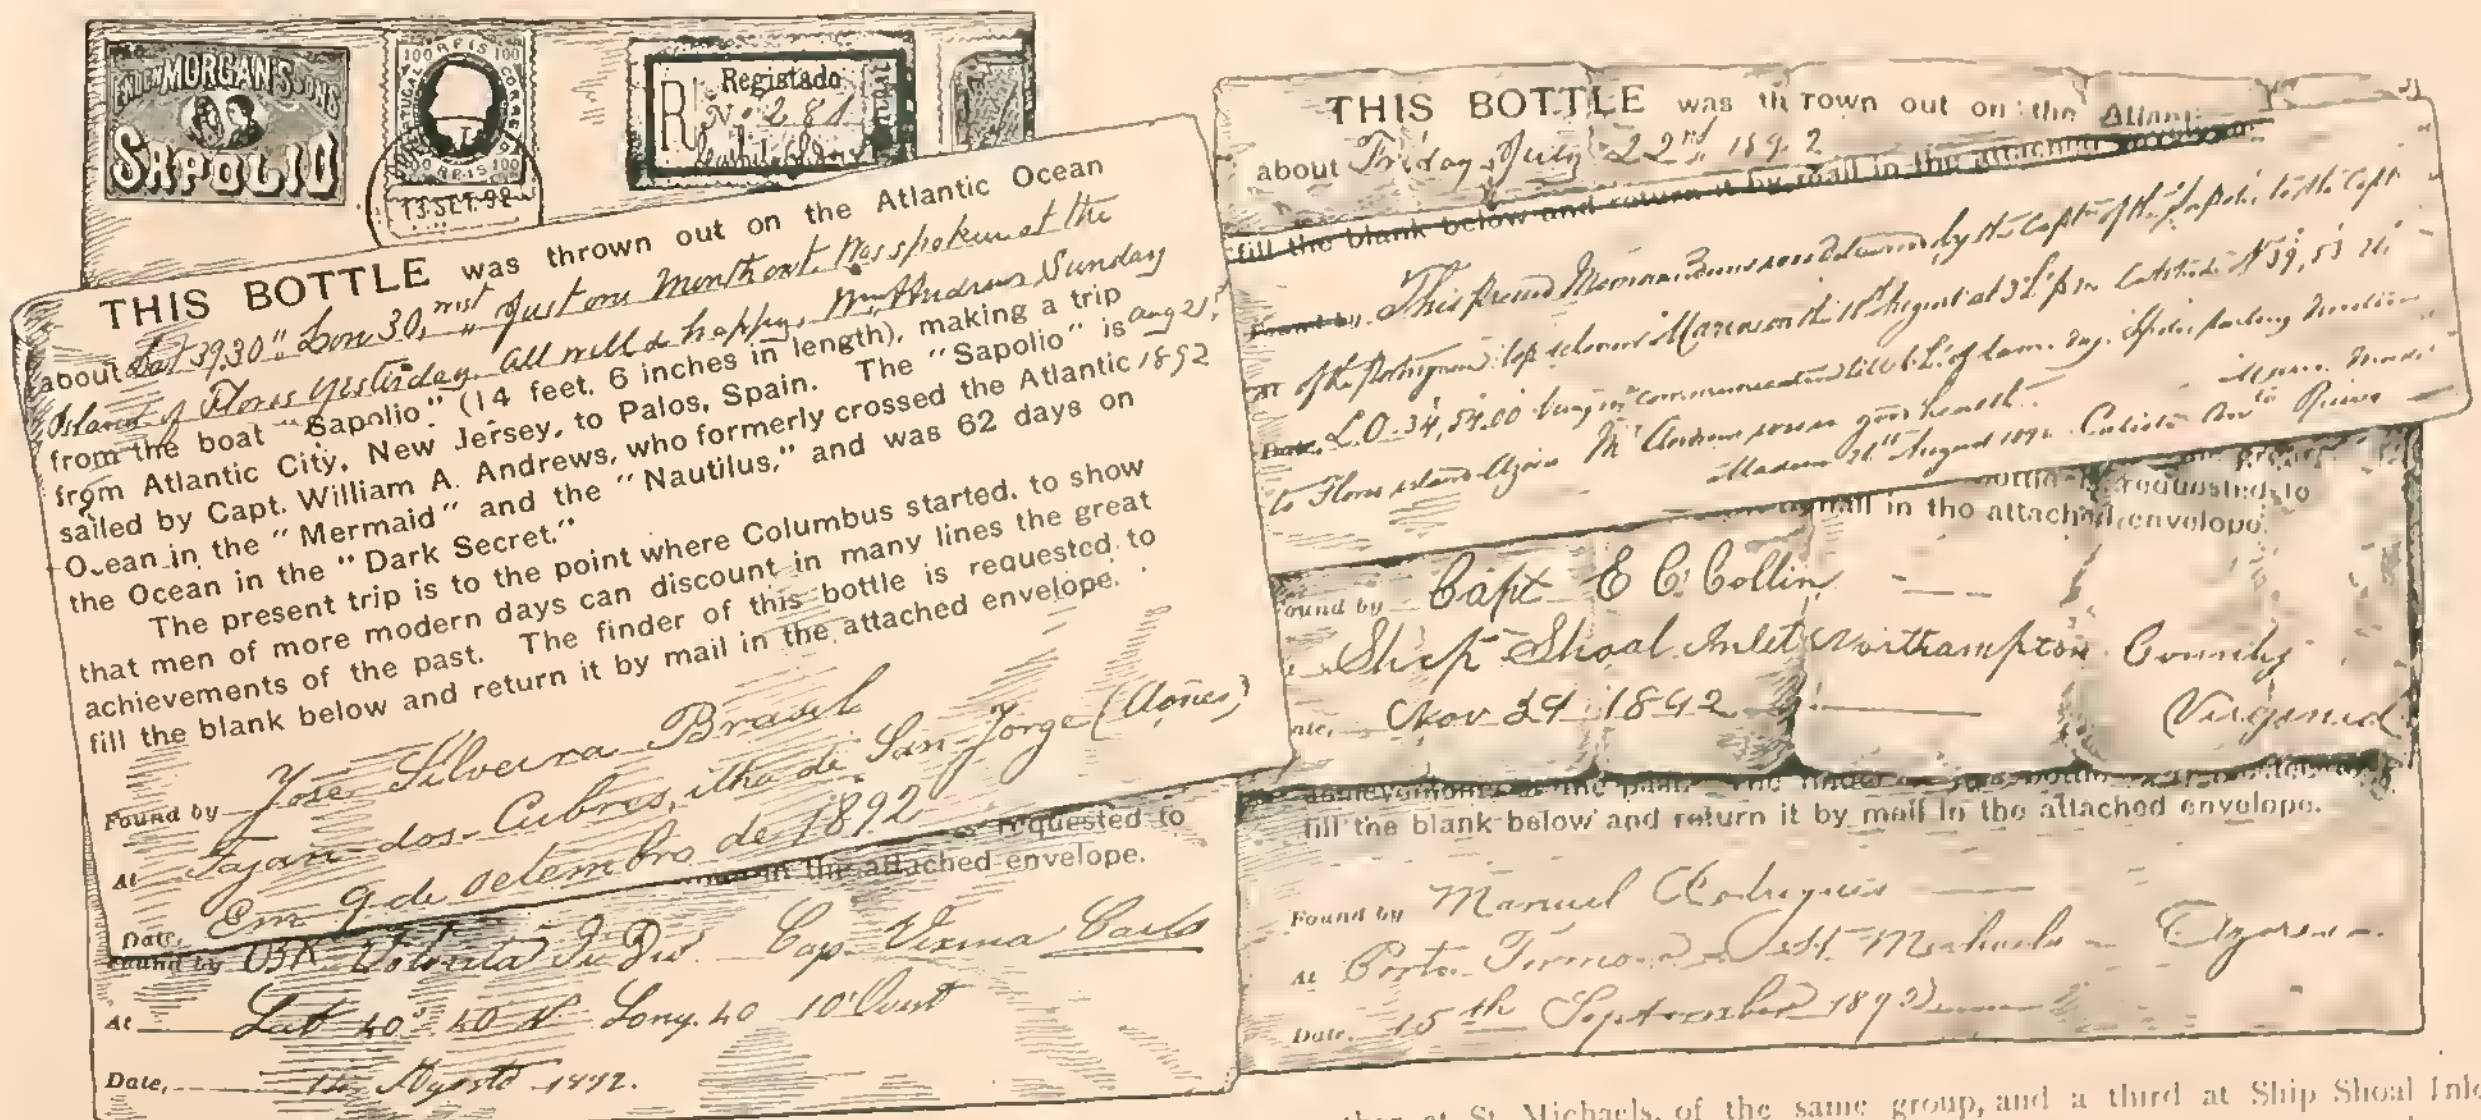 ENOCH MORGAN'S SONS
SAPOLIO
100 REIS 100
PORTUGAL
CORREIO
100 REIS 100
13 SET. 92
R
Registado
No 281
THIS BOTTLE was thrown out on the Atlantic Ocean
about Lat 39.30" Lon 30, " Just one month out. Was spoken at the
Island of Flores yesterday. all well & happy. Wm Andrews Sunday
Aug 21st
1892
from the boat "Sapolio" (14 feet, 6 inches in length), making a trip
from Atlantic City, New Jersey, to Palos, Spain. The "Sapolio" is
sailed by Capt. William A. Andrews, who formerly crossed the Atlantic
Ocean in the "Mermaid" and the "Nautilus," and was 62 days on
the Ocean in the "Dark Secret."
The present trip is to the point where Columbus started, to show
that men of more modern days can discount in many lines the great
achievements of the past. The finder of this bottle is requested to
fill the blank below and return it by mail in the attached envelope.
Found by José Silveira Brasil
At Fajan dos Cubres, ilha de San Jorge (Açores)
Date, Em 9 de Setembro de 1892
requested to
in the attached envelope.
Found by Cap.
At Lat 40° 40 N Long. 40 10' Ouest
Date, Agosto 1892.
THIS BOTTLE was thrown out on the Atlant
about Friday July 22nd 1892
fill the blank below and return it by mail in the attached
Found by This present was by the Capt of the Sapolio to the Capt
At of the on the 18th August at
Date, L.O. 34,54.00 communication
to Flores island Azores Mr Andrews good health.
August 1892
requested to
mail in the attached envelope.
Found by Capt E C Collin
Ship Shoal Inlet Northampton County
Date, Nov 24 1892 Virginia
achievements of the past. The finder of this bottle
fill the blank below and return it by mail in the attached envelope.
Found by Manuel Rodrigues
At Porto Formoso St. Michaels Azores
Date, 15th September 1892
at St. Michaels, of the same group, and a third at Ship Shoal Inle